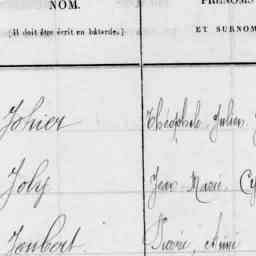 NOM.
PRÉNOMS
(Il doit être écrit en bâtarde.)
ET SURNOM
Johier
Théophile Julien
Joly
Jean Marie Cy
Joubert
Pierre, Aimé